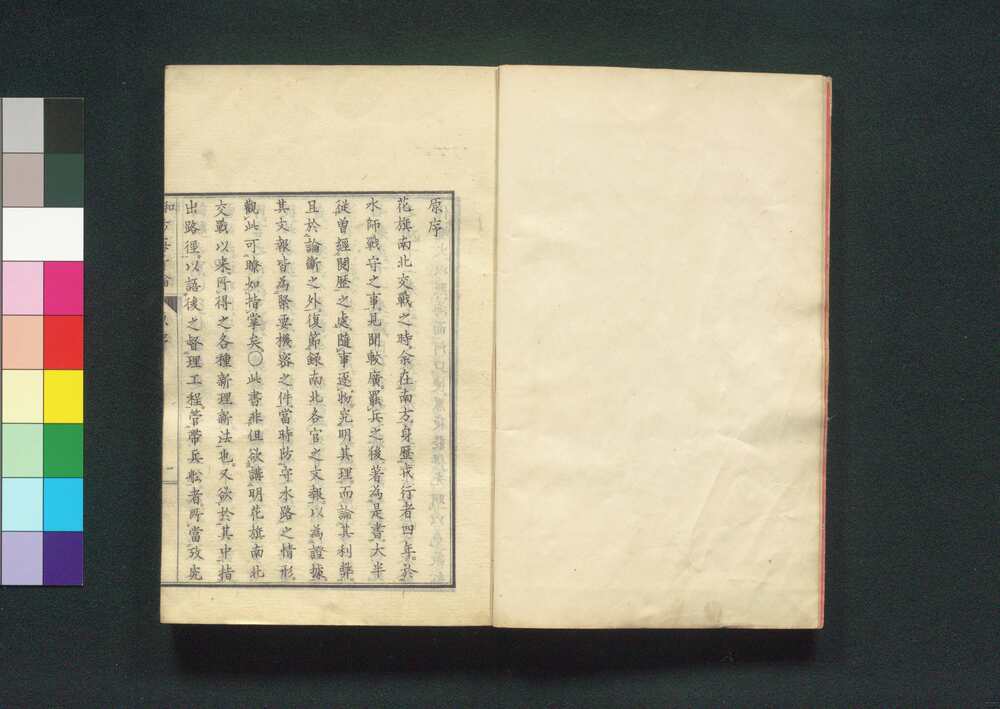 原序
花旗南北交戰之時余在南方身歷戎行者四年於
水師戰守之事見聞較廣罷兵之後著為是書大半
從曾經閱歷之處隨事逐物究明其理而論其利弊
且於論斷之外復節錄南北各官之文報以為證據
其文報皆為緊要機密之件當時防守水路之情形
觀此可瞭如指掌矣○此書非但欲講明花旗南北
交戰以來所得之各種新理新法也又欲於其中指
出路徑以語後之督理工程管帶兵船者所當攷究